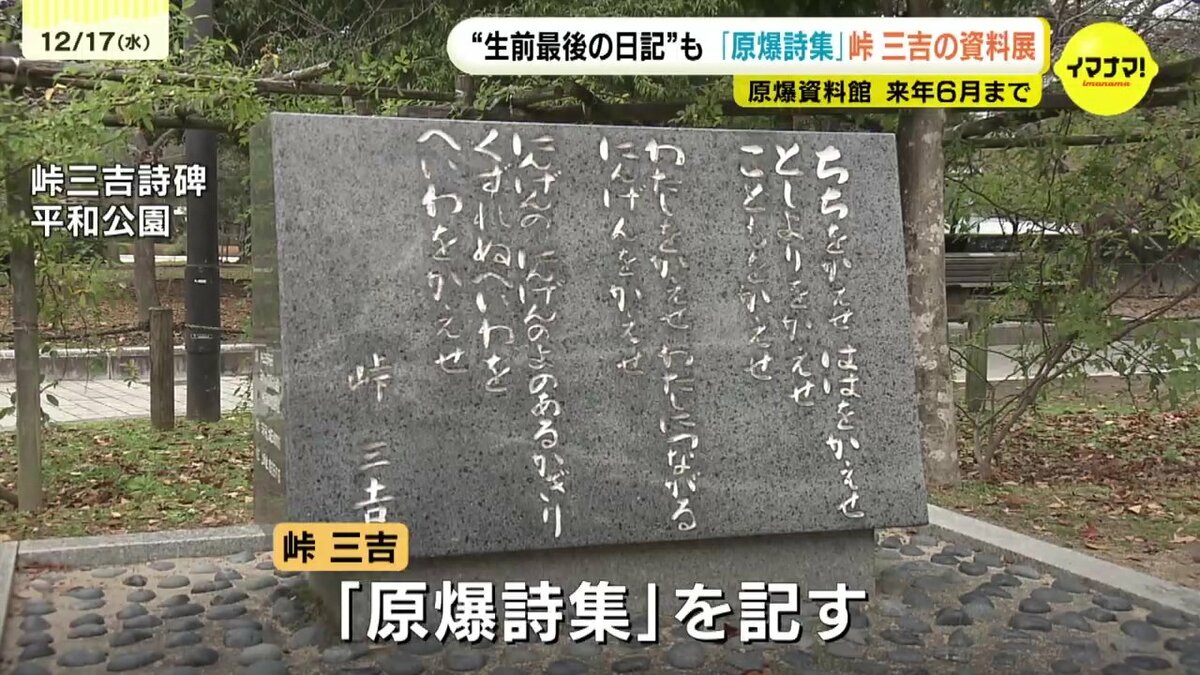 12/17(水)
“生前最後の日記”も 「原爆詩集」峠 三吉の資料展
原爆資料館 来年6月まで
イマナマ!
imanama
峠三吉詩碑
平和公園
ちちをかえせ ははをかえせ
としよりをかえせ
こどもをかえせ
わたしをかえせ わたしにつながる
にんげんをかえせ
にんげんの にんげんのよのあるかぎり
くずれぬへいわを
へいわをかえせ
峠 三吉
峠 三吉
「原爆詩集」を記す